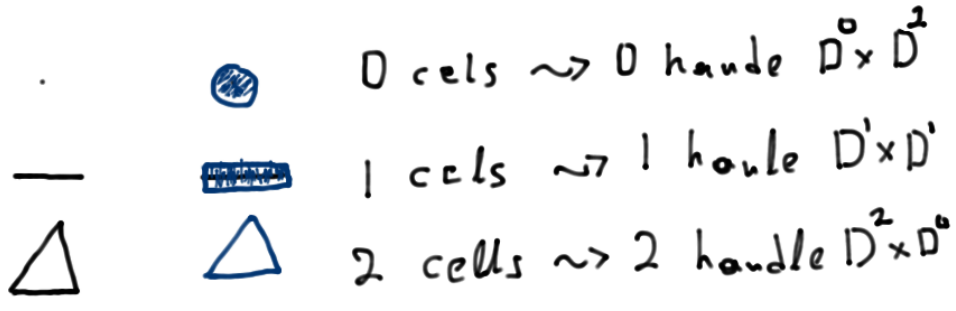 0 cels ⇝ 0 hande D⁰ × D²
1 cels ⇝ 1 haule D¹ × D¹
2 cells ⇝ 2 handle D² × D⁰